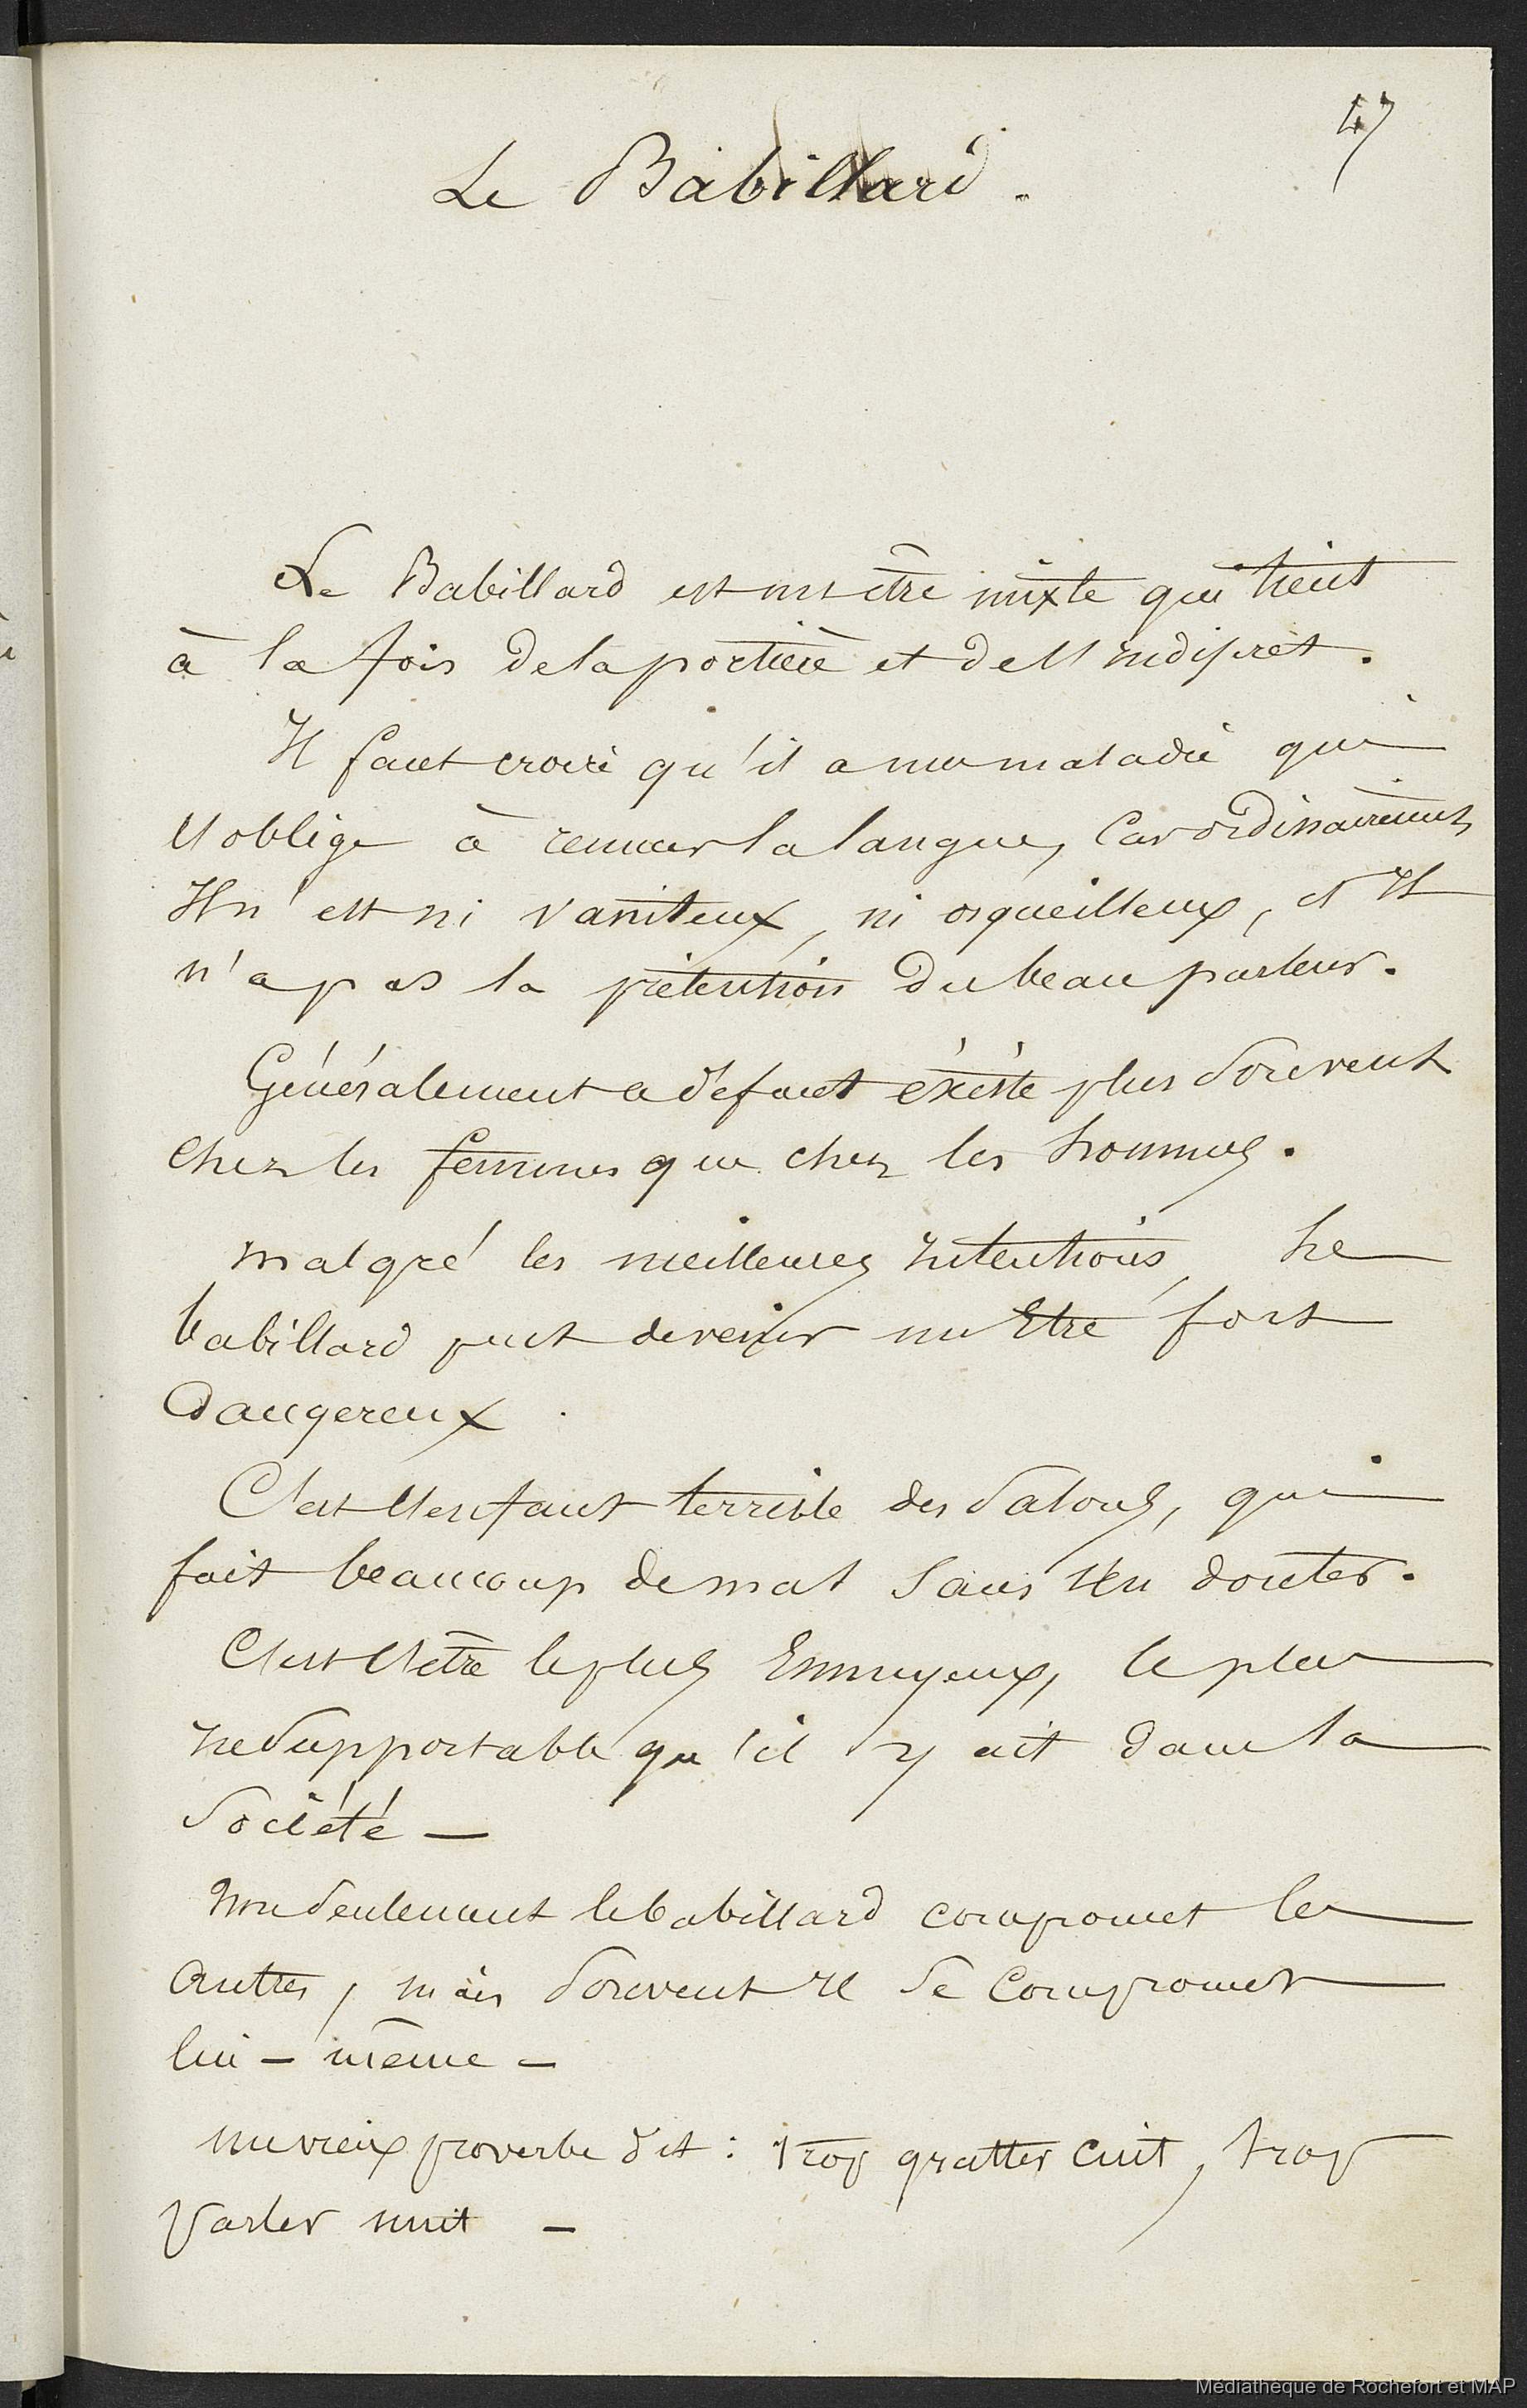 47
Le Babillard.
Le Babillard est un être mixte qui tient
à la fois de la portière et de l'indiscret.
Il faut croire qu'il a une maladie qui
l'oblige à remuer la langue, car ordinairement,
Il n'est ni vaniteux, ni orgueilleux, et Il
n'a pas la prétention du beau parleur.
Généralement ce défaut éxiste plus souvent
chez les femmes que chez les hommes.
malgré les meilleures Intentions, ce
babillard peut devenir un Etre fort
dangereux.
C'est l'enfant terrible des Salons, qui
fait beaucoup de mal sans s'en douter.
C'est l'être le plus Ennuyeux, le plus
Insupportable qu'il y ait dans la
Société —
Non seulement le babillard compromet les
autres, mais souvent Il se compromet
lui - même -
un vieux proverbe dit : trop gratter cuit, trop
parler nuit —
Médiathèque de Rochefort et MAP